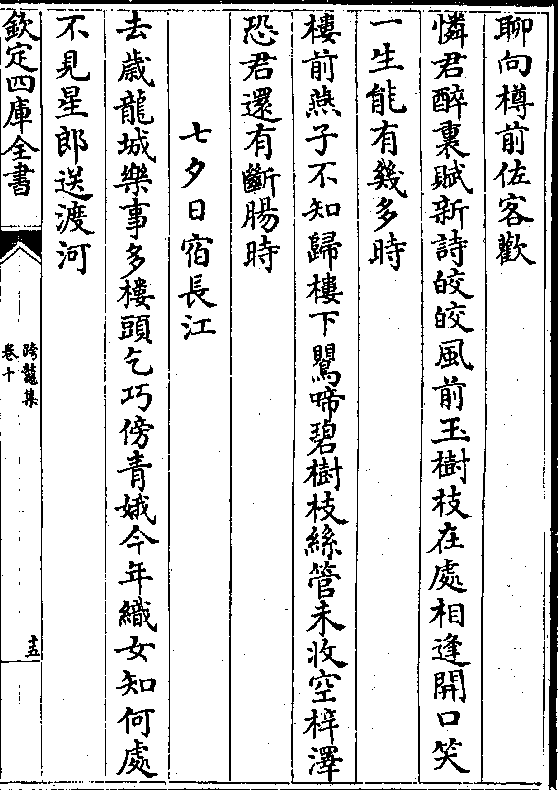 聊向樽前佐客歡
憐君醉裏賦新詩皎皎風前玉樹枝在處相逢開口笑
一生能有幾多時
樓前燕子不知歸樓下鸎啼碧樹枝絲管未收空梓澤
恐君還有斷腸時
七夕日宿長江
去歲龍城樂事多樓頭乞巧傍青娥今年織女知何處
不見星郎送渡河
欽定四庫全書
跨鼇集
卷十
十五